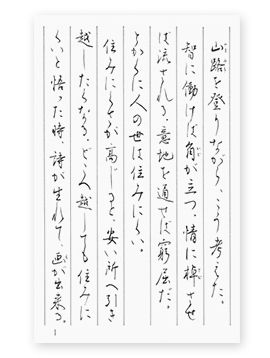 山路を登りながら、こう考えた。
智に働けば角が立つ。情に棹させ
ば流される。意地を通せば窮屈だ。
とかくに人の世は住みにくい。
住みにくさが高じると、安い所へ引き
越したくなる。どこへ越しても住みに
くいと悟った時、詩が生れて、画が出来る。